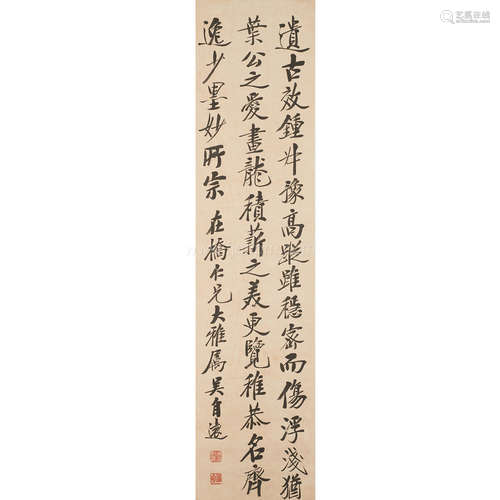 遺古效鍾毋豫高蹤雖穩密而傷浮淺猶
葉公之愛畫龍積薪之美更覽稚恭名齊
逸少墨妙所宗 在橋仁兄大雅属 吴自遠